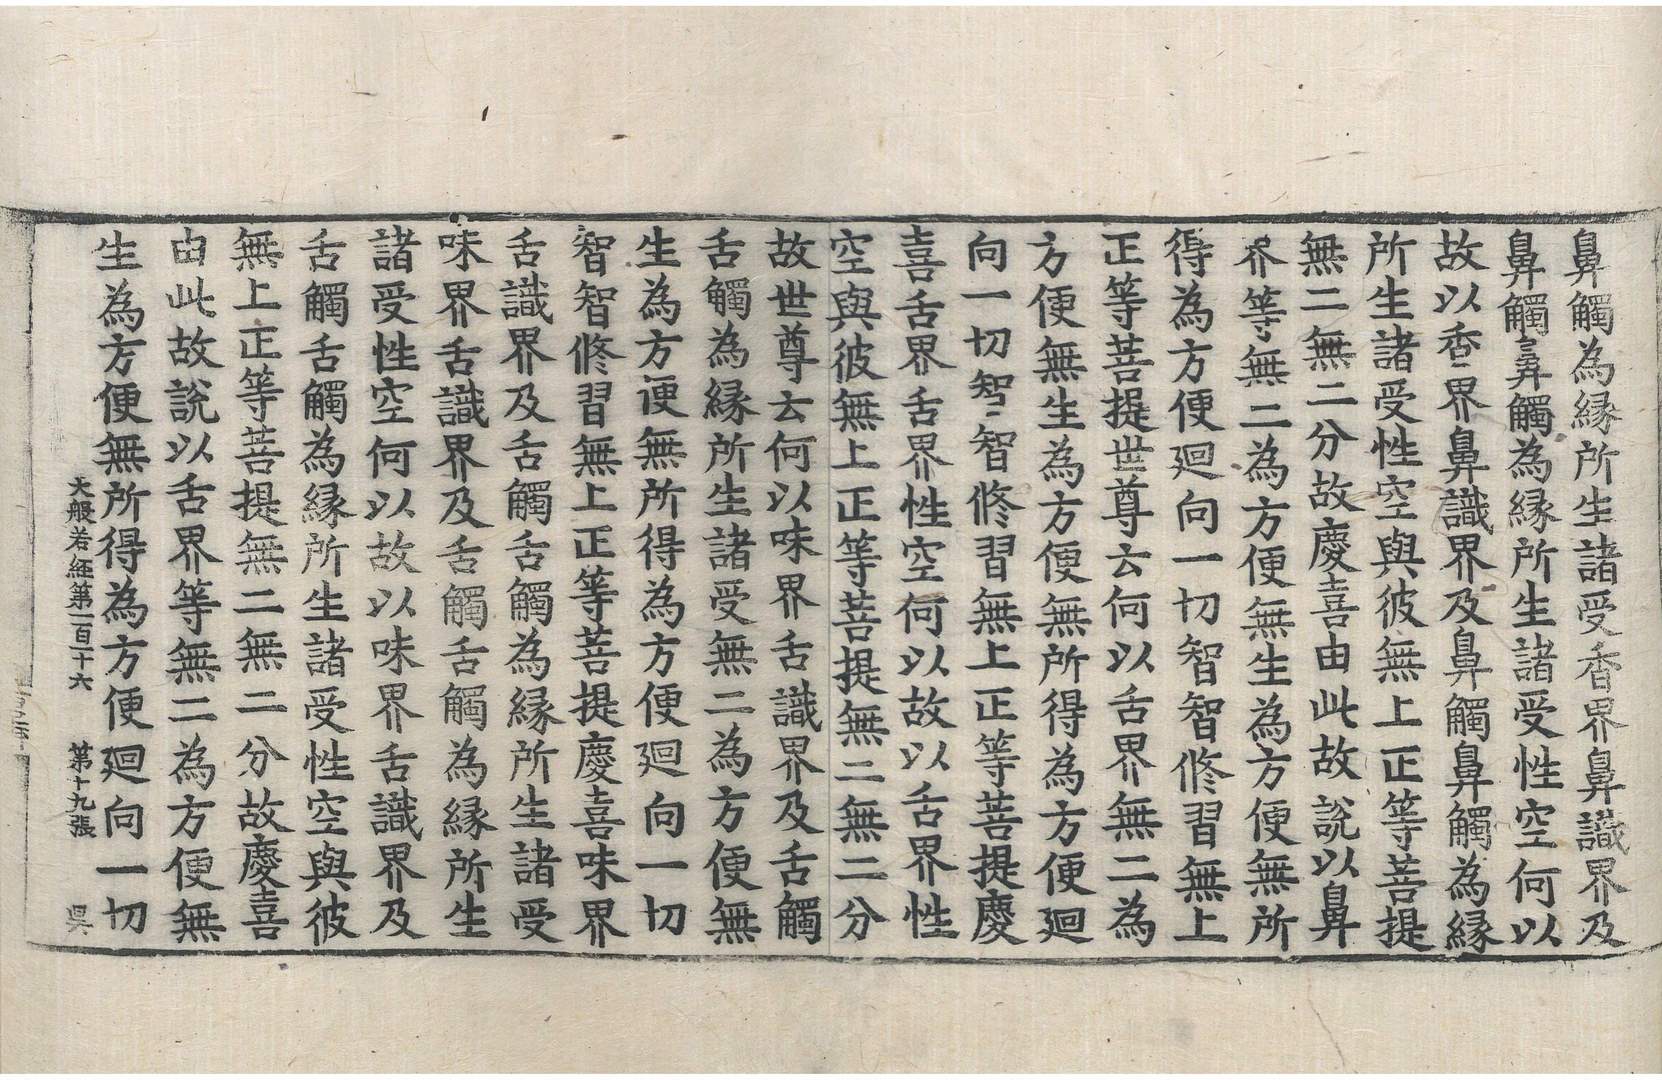 鼻觸為緣所生諸受香界鼻識界及
鼻觸鼻觸為緣所生諸受性空何以
故以香界鼻識界及鼻觸鼻觸為緣
所生諸受性空與彼無上正等菩提
無二無二分故慶喜由此故說以鼻
界等無二為方便無生為方便無所
得為方便迴向一切智智修習無上
正等菩提世尊云何以舌界無二為
方便無生為方便無所得為方便迴
向一切智智修習無上正等菩提慶
喜舌界舌界性空何以故以舌界性
空與彼無上正等菩提無二無二分
故世尊云何以味界舌識界及舌觸
舌觸為緣所生諸受無二為方便無
生為方便無所得為方便迴向一切
智智修習無上正等菩提慶喜味界
舌識界及舌觸舌觸為緣所生諸受
味界舌識界及舌觸舌觸為緣所生
諸受性空何以故以味界舌識界及
舌觸舌觸為緣所生諸受性空與彼
無上正等菩提無二無二分故慶喜
由此故說以舌界等無二為方便無
生為方便無所得為方便迴向一切
大般若經第一百一十六 第十九張 吳